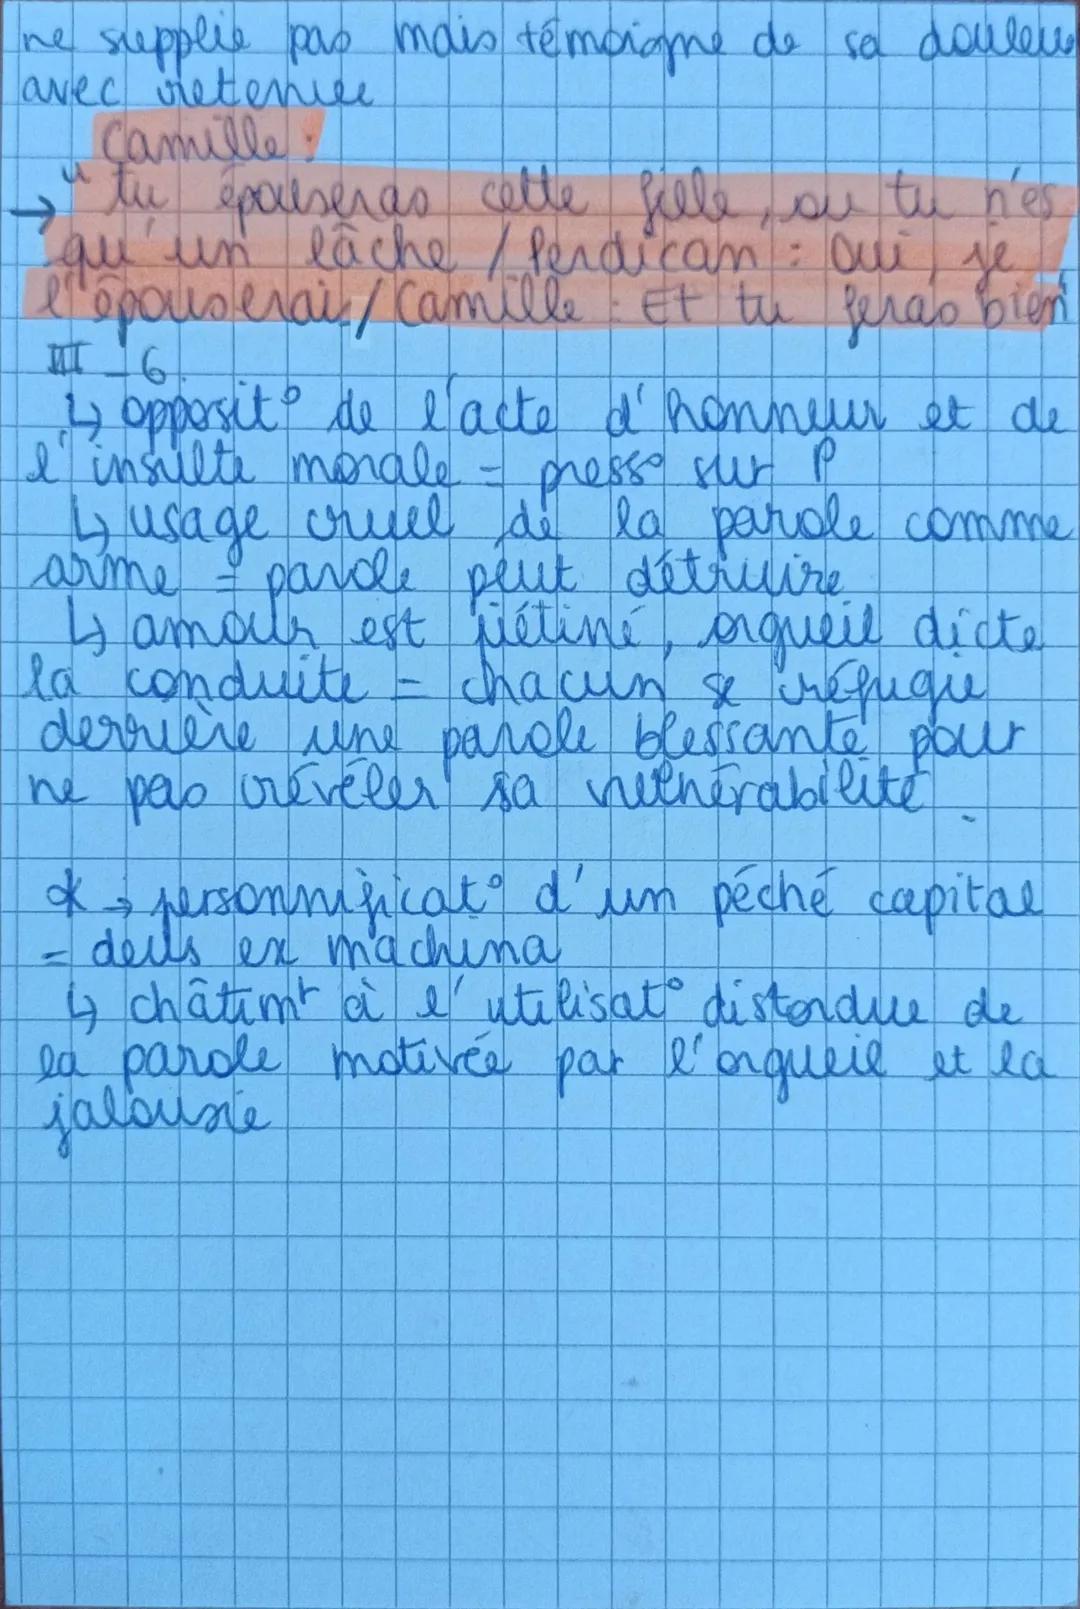 ne supplie pas mais témoigne de sa douleur
avec retenue
Camille :
→ "tu épouseras cette fille, ou tu n'es
qu'un lâche / Perdican : oui, je
l'épouserai / Camille : Et tu feras bien"
III - 6.
↳ opposit° de l'acte d'honneur et de
l'insulte morale = press° sur P
↳ usage cruel de la parole comme
arme = parole peut détruire
↳ amour est piétiné, orgueil dicte
la conduite = chacun se réfugie
derrière une parole blessante pour
ne pas révéler sa vulnérabilité
* → personnificat° d'un péché capital
= deus ex machina
↳ châtimt à l'utilisat° distordue de
la parole motivée par l'orgueil et la
jalousie